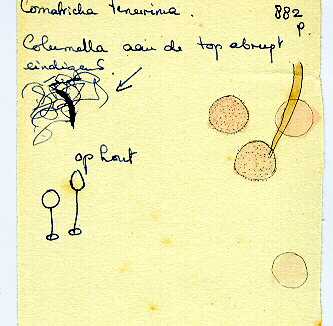 Comatricha tenerrima.
882
P.
Columella aan de top abrupt
eindigend.
op hout